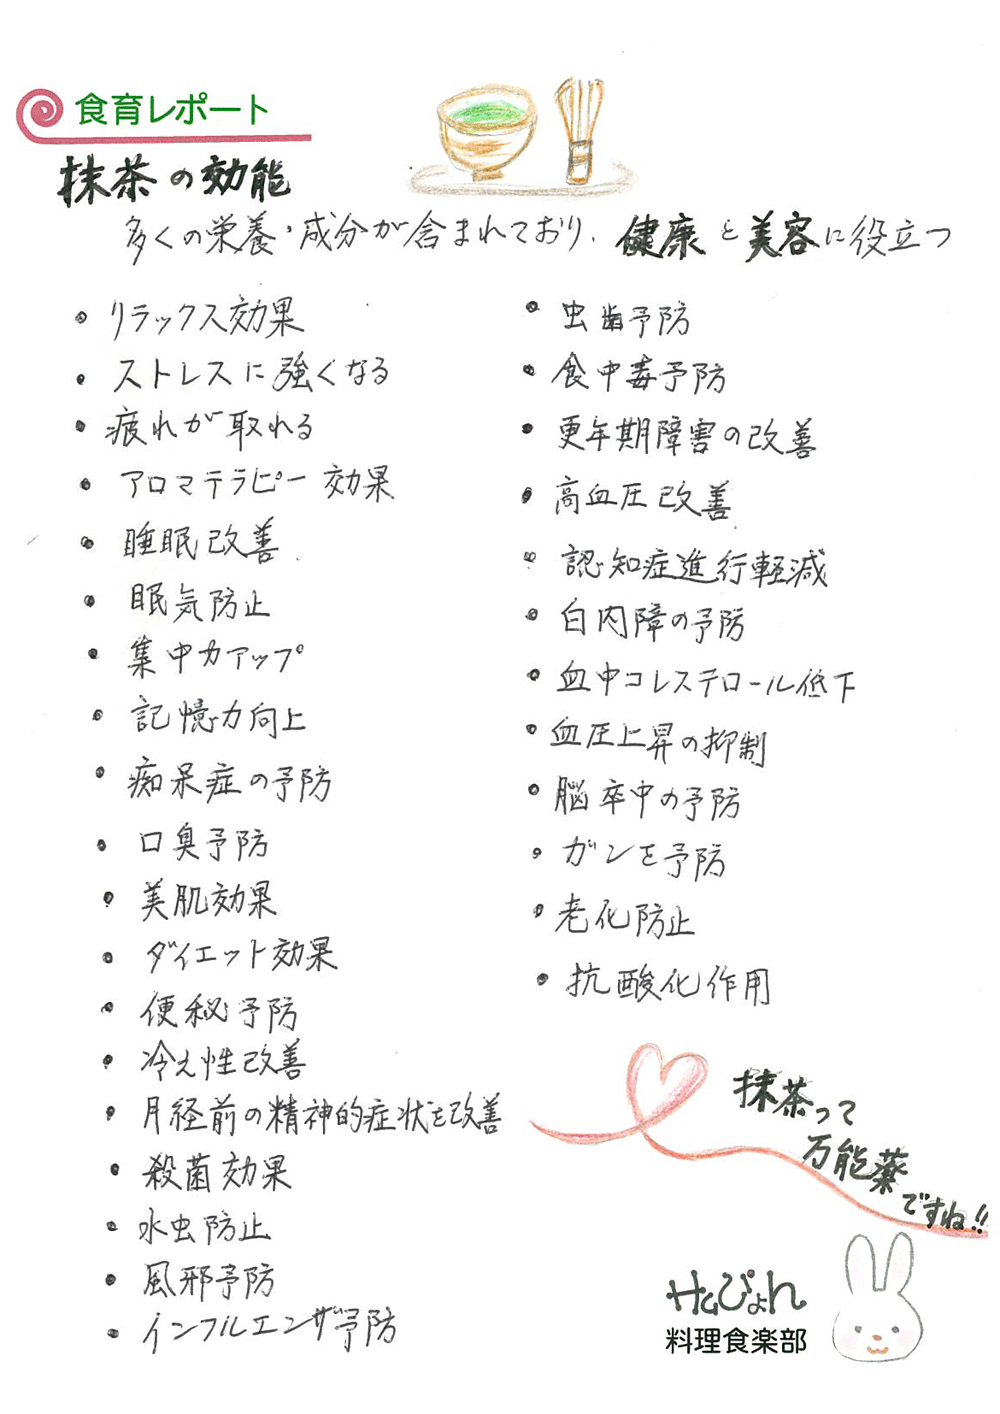 食育レポート
抹茶の効能
多くの栄養・成分が含まれており、健康と美容に役立つ
・リラックス効果
・ストレスに強くなる
・疲れが取れる
・アロマテラピー効果
・睡眠改善
・眠気防止
・集中力アップ
・記憶力向上
・痴呆症の予防
・口臭予防
・美肌効果
・ダイエット効果
・便秘予防
・冷え性改善
・月経前の精神的症状を改善
・殺菌効果
・水虫防止
・風邪予防
・インフルエンザ予防
・虫歯予防
・食中毒予防
・更年期障害の改善
・高血圧改善
・認知症進行軽減
・白内障の予防
・血中コレステロール低下
・血圧上昇の抑制
・脳卒中の予防
・ガンを予防
・老化防止
・抗酸化作用
抹茶って
万能薬
ですね!!
料理食楽部